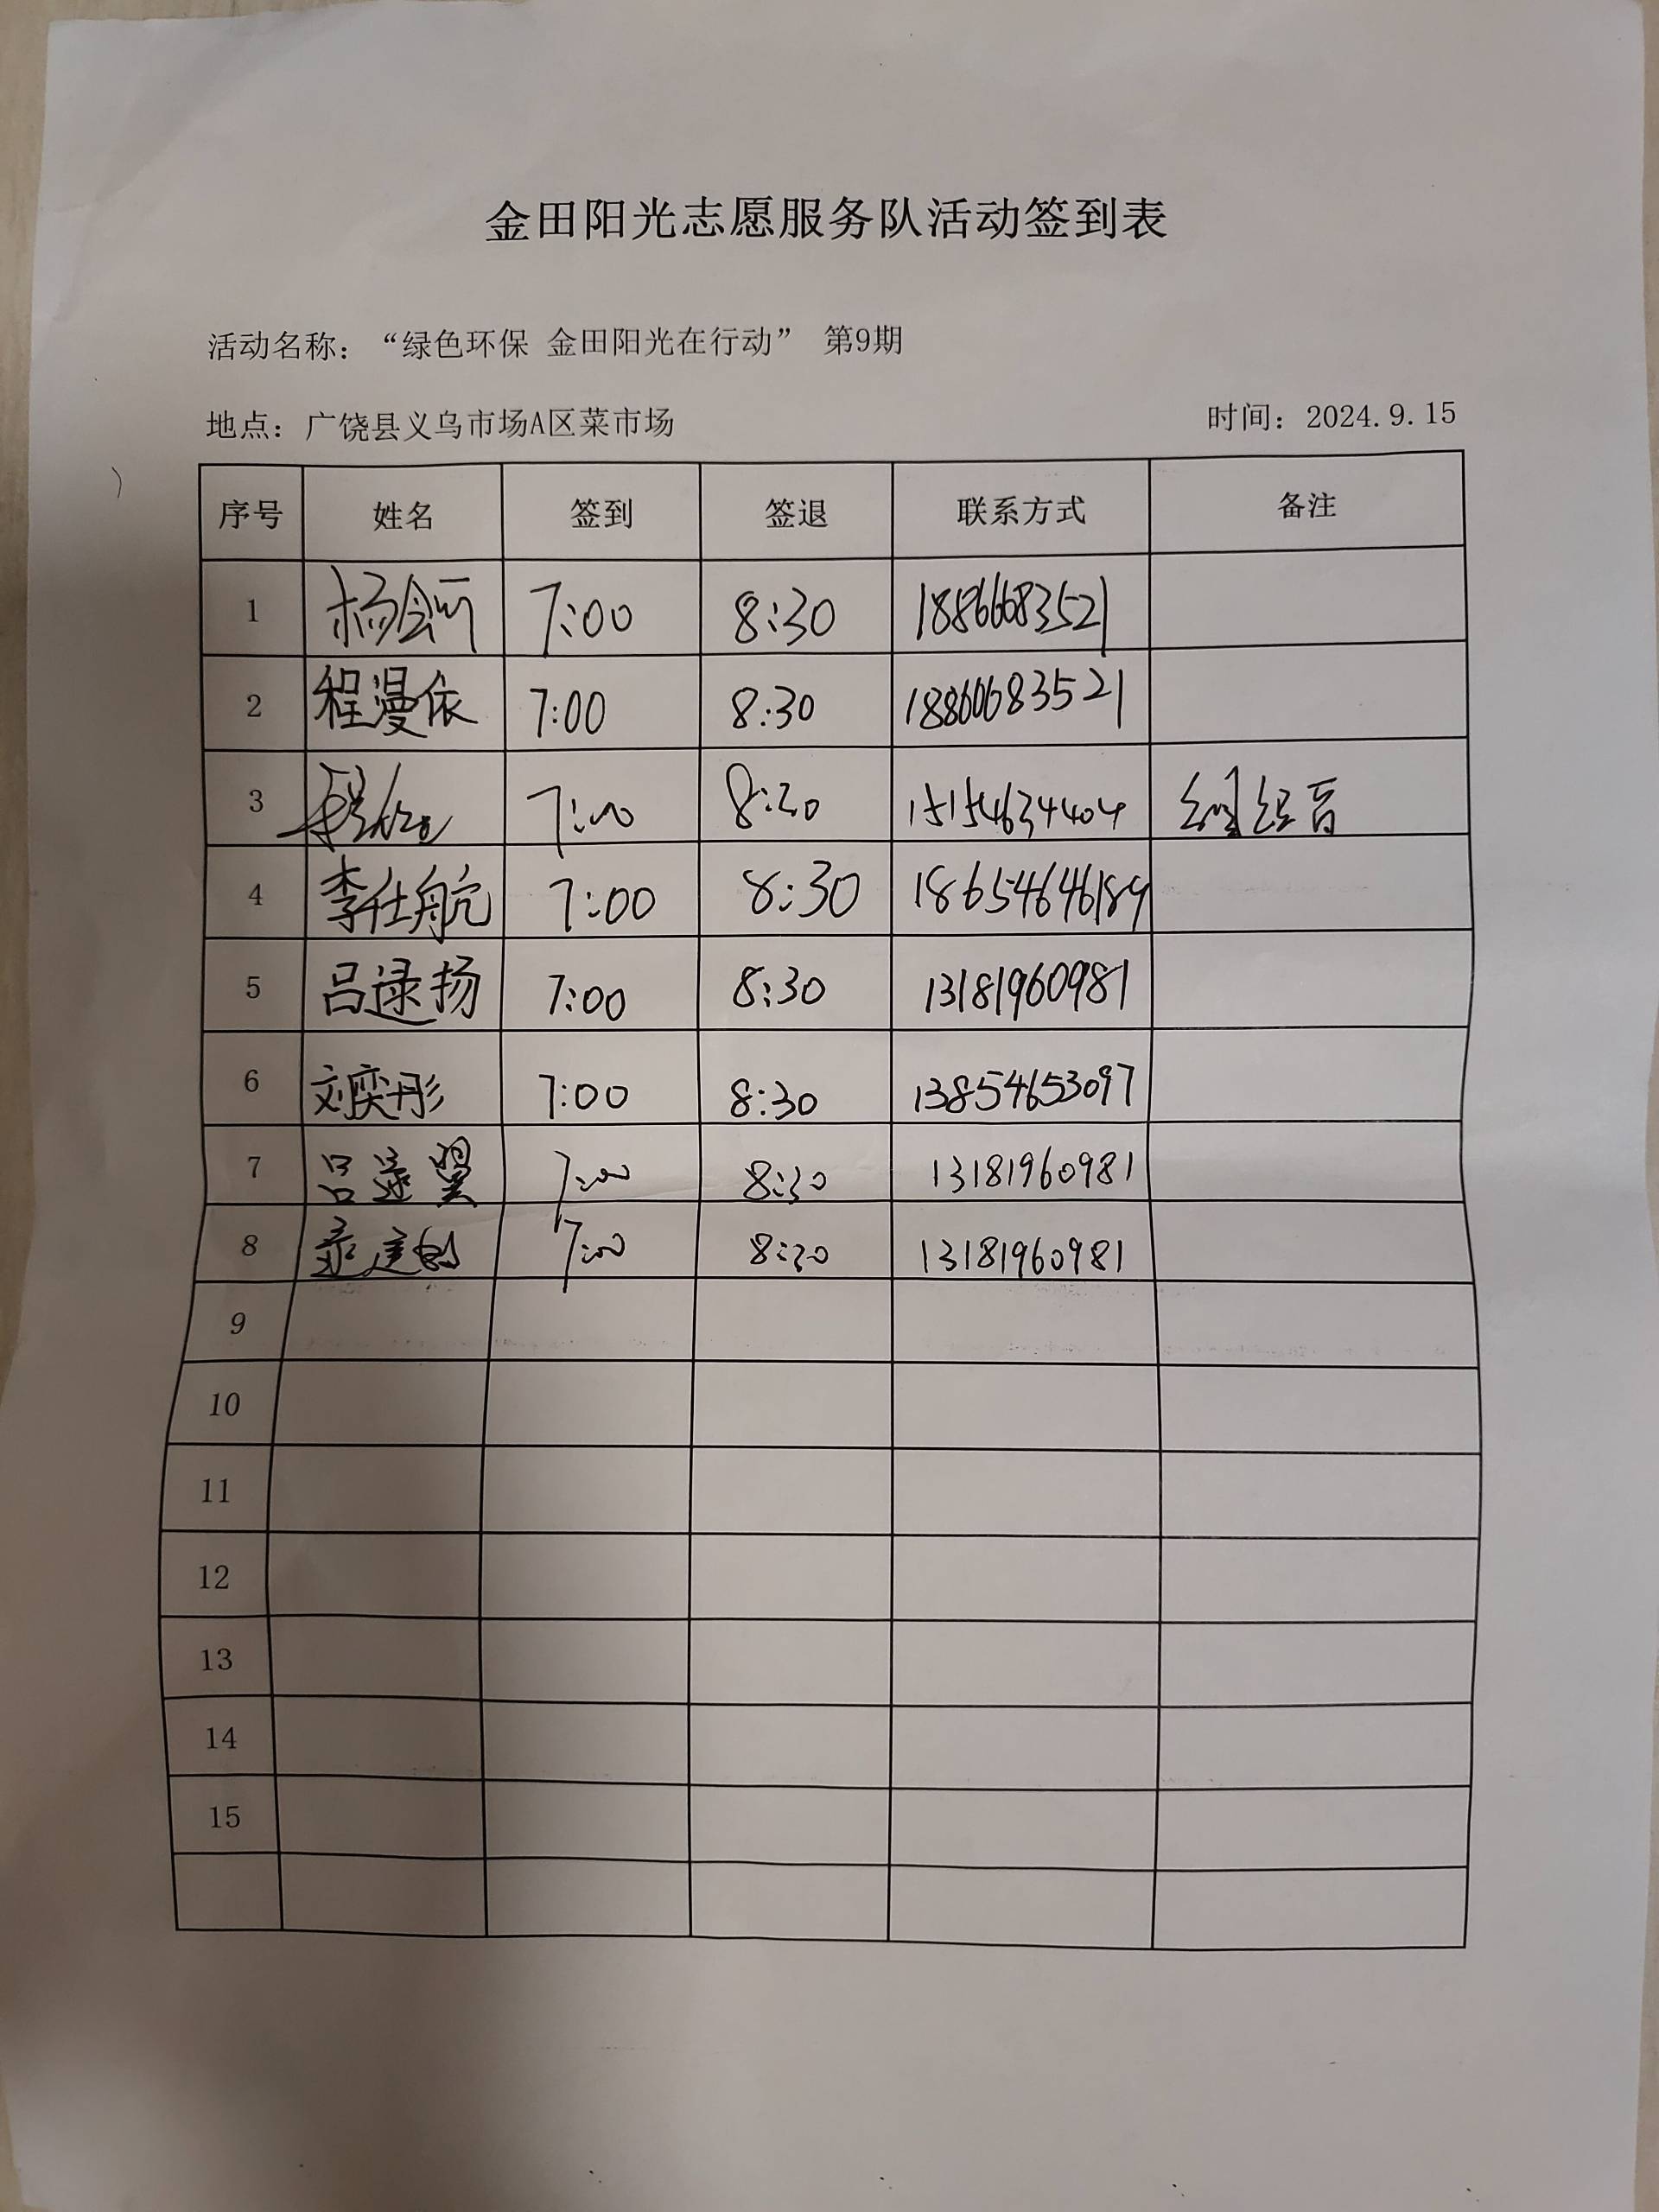 金田阳光志愿服务队活动签到表
活动名称：“绿色环保 金田阳光在行动” 第9期
地点：广饶县义乌市场A区菜市场 时间：2024.9.15
序号 姓名 签到 签退 联系方式 备注
1 7:00 8:30 18866683521
2 程漫依 7:00 8:30 18866683521
3 7:00 8:30 15154634404
4 李仕航 7:00 8:30 18654646189
5 吕逯扬 7:00 8:30 13181960981
6 刘奕彤 7:00 8:30 13854653097
7 吕逯翼 7:00 8:30 13181960981
8 7:00 8:30 13181960981
9
10
11
12
13
14
15